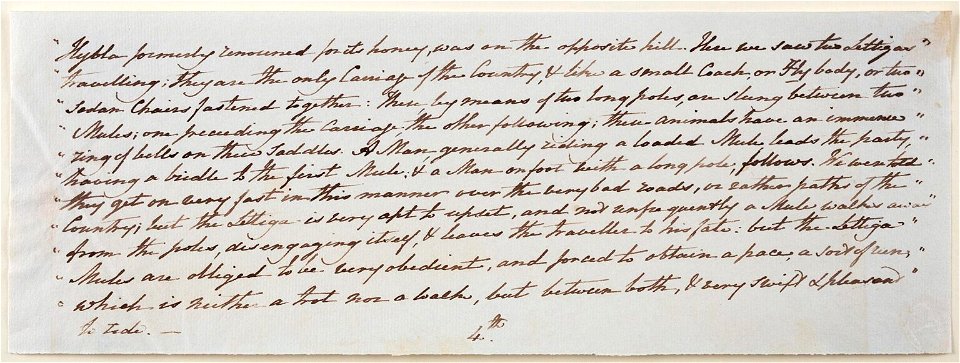 " Hybla formerly renowned for its honey, was on the opposite hill. Here we saw two Lettigas "
" travelling; they are the only Carriage of the Country, & like a small Coach, or Fly body, or two "
" Sedan Chairs fastened together: These by means of two long poles, are slung between two "
" Mules; one preceding the Carriage the other following; these animals have an immense "
" ring of bells on their Saddles. A Man generally riding a loaded Mule, leads the party, "
" having a bridle to the first Mule, & a Man on foot with a long pole, follows. We were told "
" they get on very fast in this manner over the very bad roads, or rather paths of the "
" Country; but the Lettiga is very apt to upset, and not unfrequently a Mule walks away "
" from the poles, disengaging itself, & leaves the traveller to his fate: but the Lettiga "
" Mules are obliged to be very obedient, and forced to obtain a pace, a sort of run, "
" which is neither a trot nor a walk, but between both, & very swift & pleasant "
to ride. —
4th.